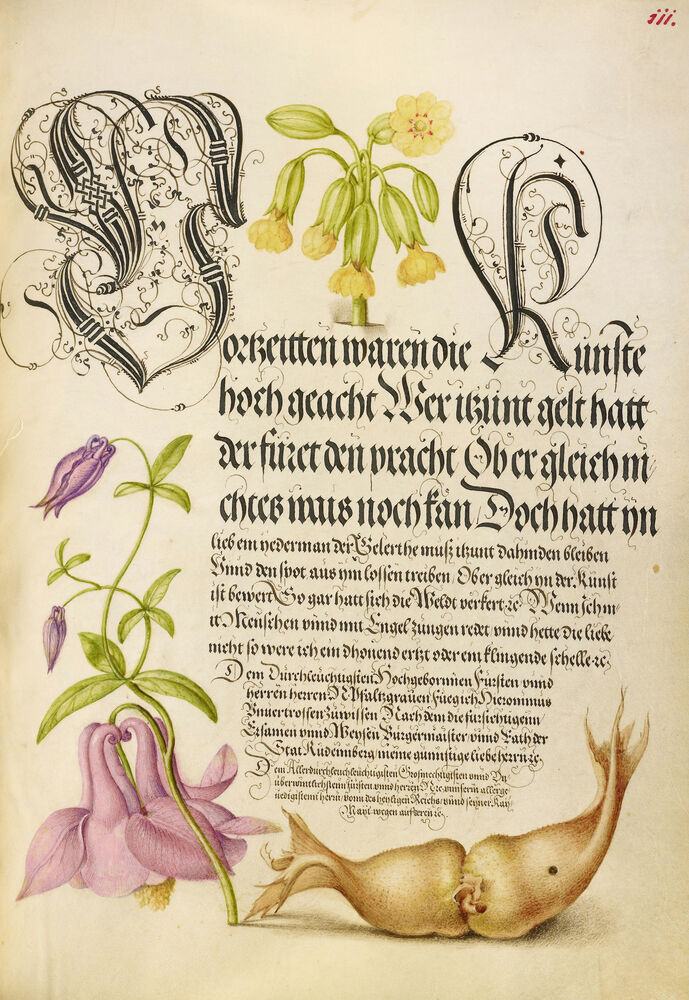 iii.
Vortzeitten waren die Künste
hoch geacht Wer itzünt gelt hatt
der füret den pracht Ob er gleich ni
chtes mais noch kan Doch hatt yn
lieb ein yederman der Gelerthe muß itzunt dahinden bleiben
Vnnd den spot aus ym lossen treiben Ob er gleich yn der Künst
ist bewert So gar hatt sich die Weldt verkert ꝛc Wenn ich m
it Menschen vnnd mit Engel zungen redet vnnd hette die liebe
nicht so were ich ein dhonend ertzt oder ein klingende schelle ꝛc
Dem Dürchleüchtigsten Hochgebornnen Fürsten vnnd
herren herren N Pfaltzgrauen
zuwissen Nach dem die fürsichtigenn
Ersamen vnnd Weysen Bürgermaister vnnd Rath der
Stat meine günnstige liebe herrn ꝛc
Dem Allerdurchleuchleüchtigisten Grosmechtigisten vnnd Vn
überwintlichstenn fürsten vnnd herren N ꝛc vnnserm allerge
nedigistenn herrn vonn des heyligen Reichs vnnd seyner Kay
Mayt wegen